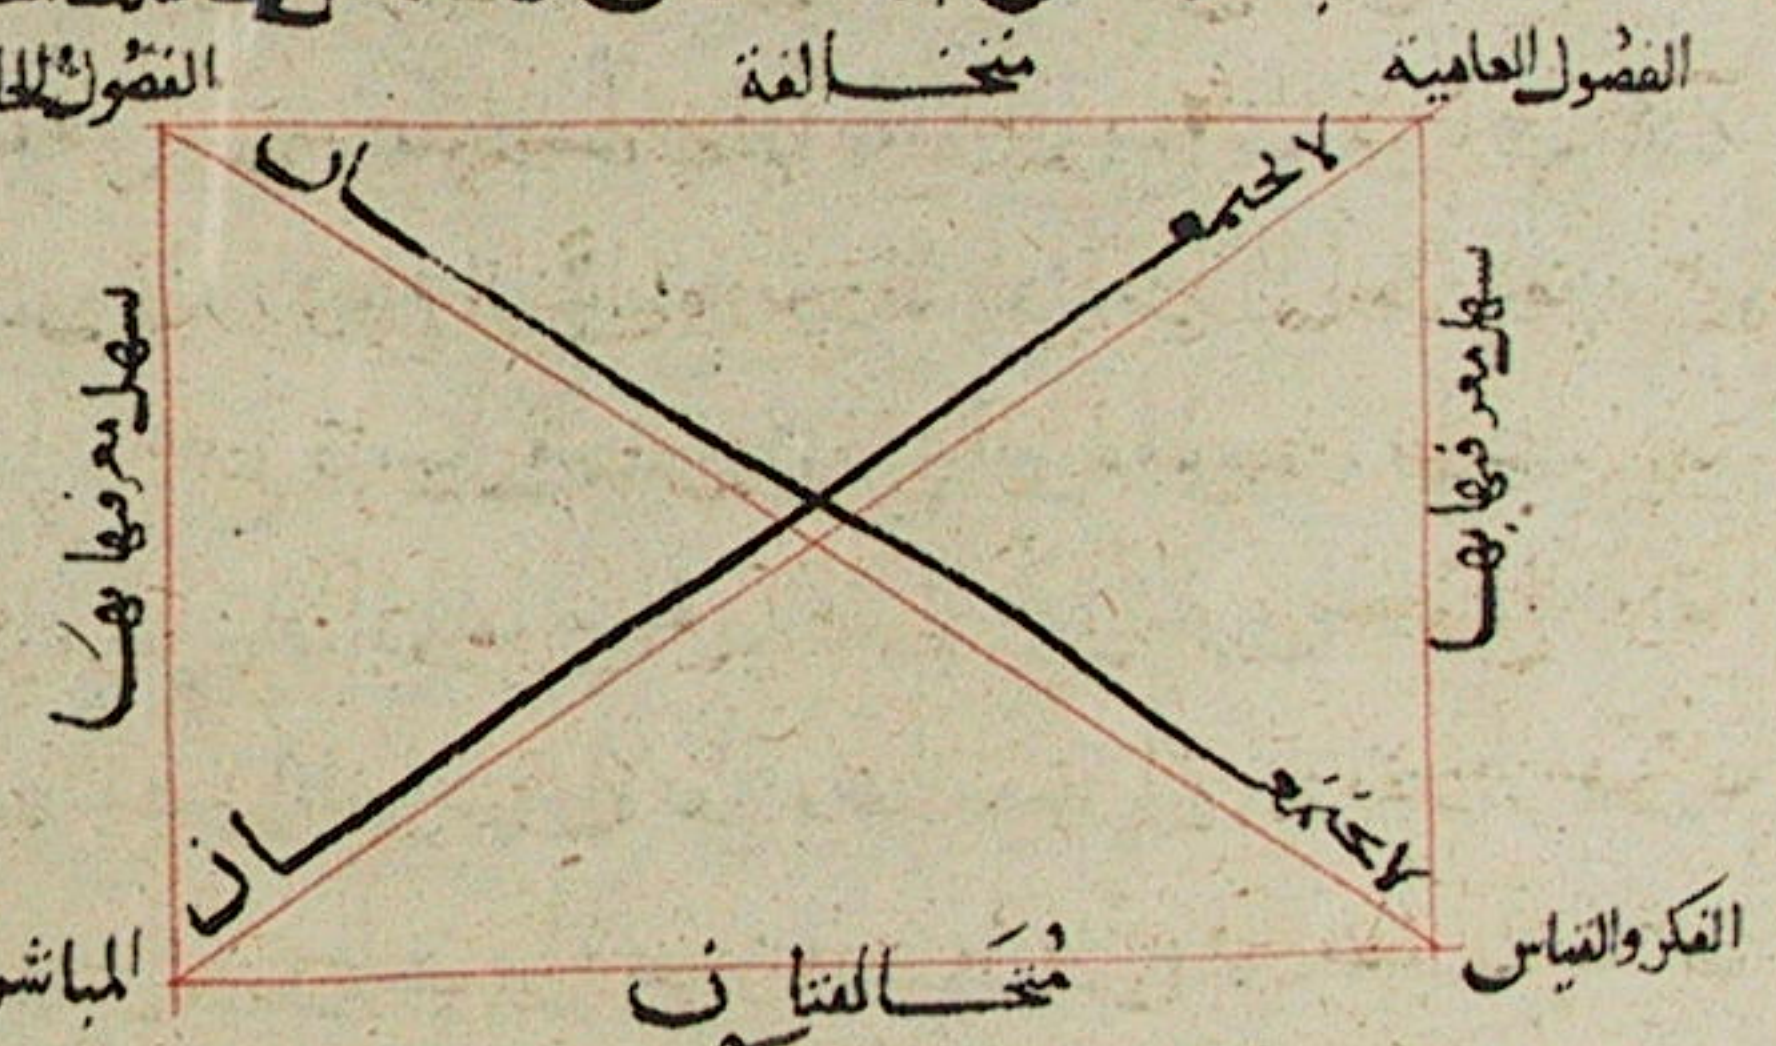 الفصُول العامية
متخالفة
الفصُول
لا تجتمعان
لا تجتمَعان
سهل معرفتها بها
سهل معرفتها بهَا
الفكر والقياس
مُتخَالفتان